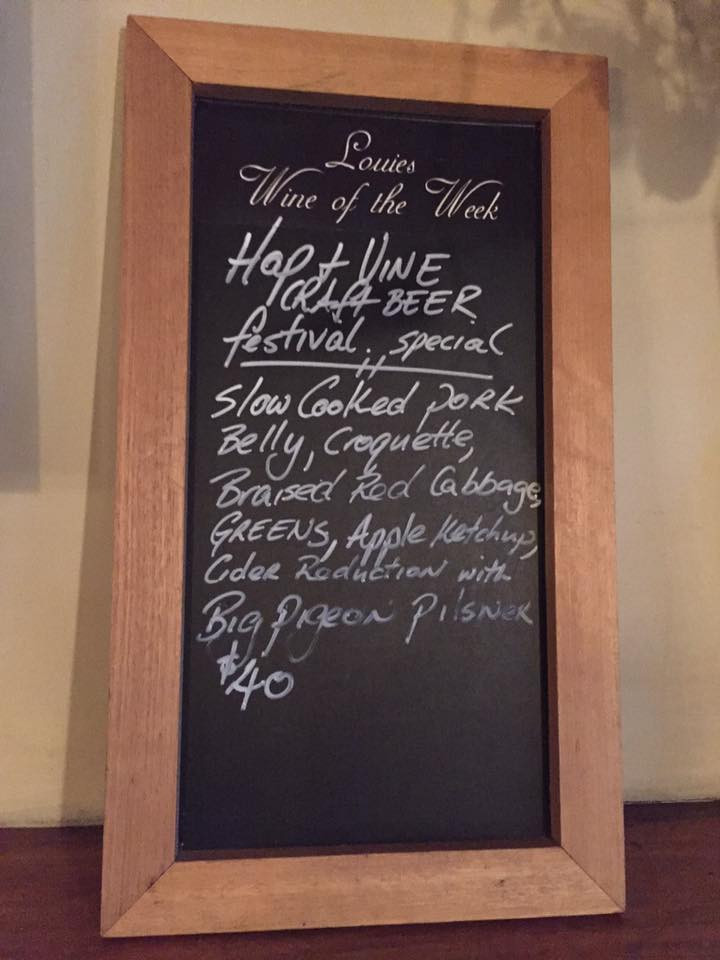 Louies
Wine of the Week
Hop + VINE
CRAft BEER
festival special
Slow Cooked PORK
Belly, Croquette,
Braised Red Cabbage,
GREENS, Apple Ketchup,
Cider Reduction with
Big Pigeon Pilsner
$40